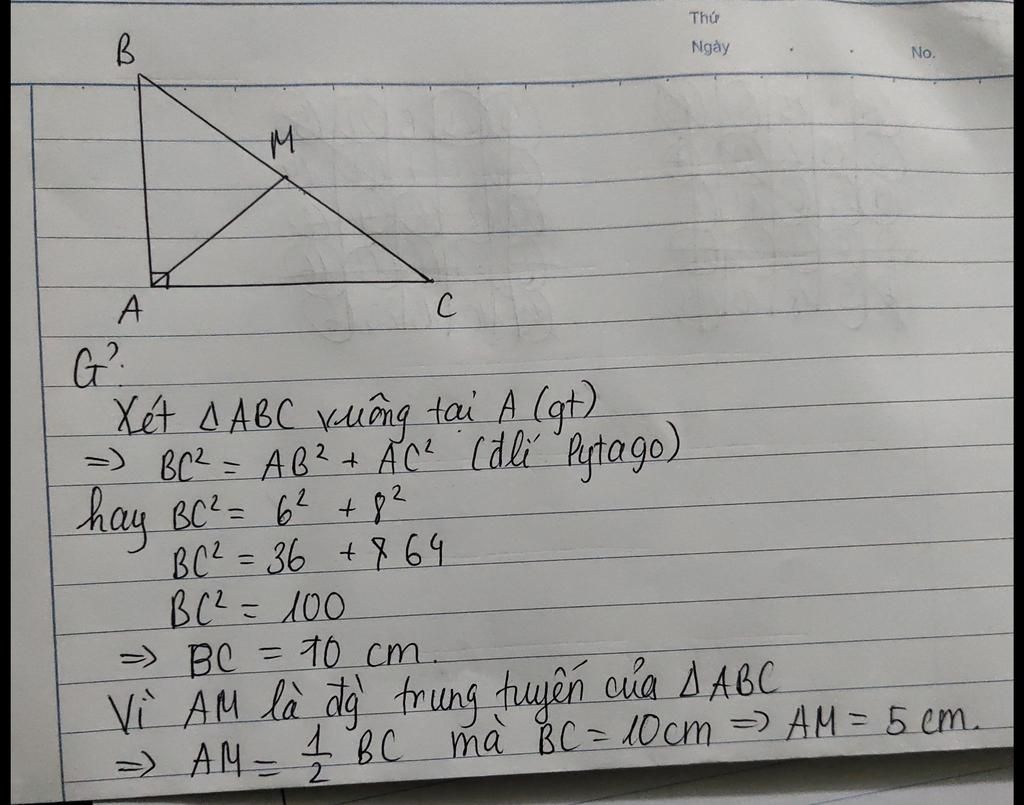 Thứ
Ngày . . No.
B
M
A C
G?:
Xét ΔABC vuông tại A (gt)
=> BC² = AB² + AC² (đlí Pytago)
hay BC² = 6² + 8²
BC² = 36 + 64
BC² = 100
=> BC = 10 cm.
Vì AM là đg̀ trung tuyến của ΔABC
=> AM = 1/2 BC mà BC = 10cm => AM = 5 cm.